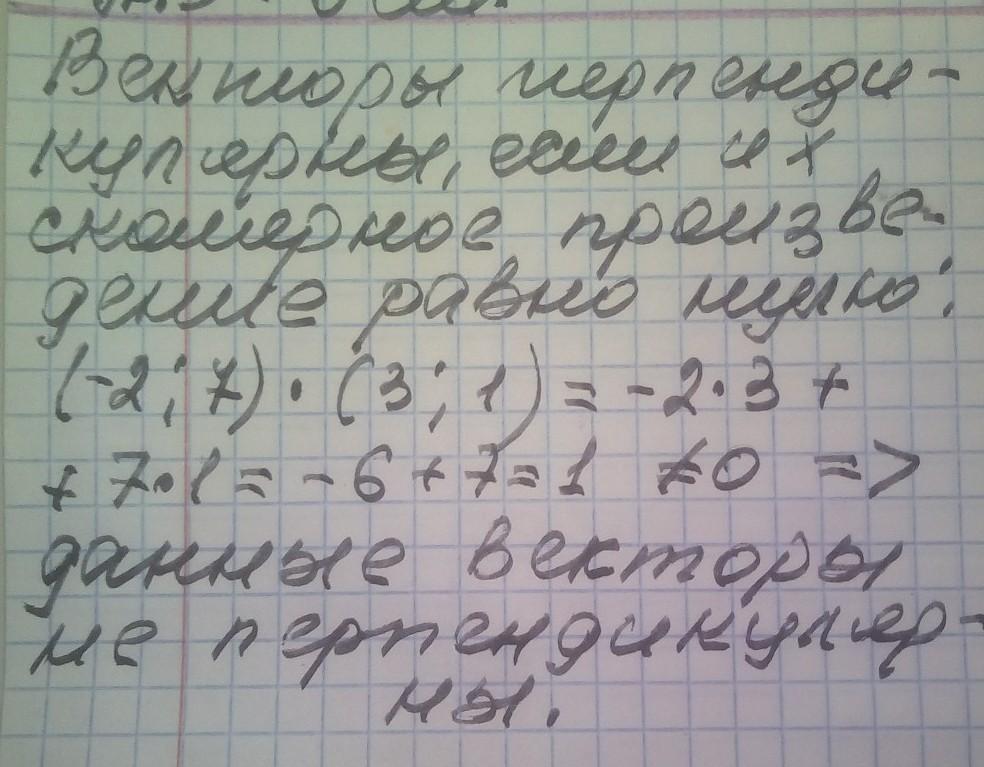 Векторы перпенди-
кулярны, если их
скалярное произве-
дение равно нулю:
(-2; 7) · (3; 1) = -2·3 +
+ 7·1 = -6 + 7 = 1 ≠0 =>
данные векторы
не перпендикуляр-
ны.